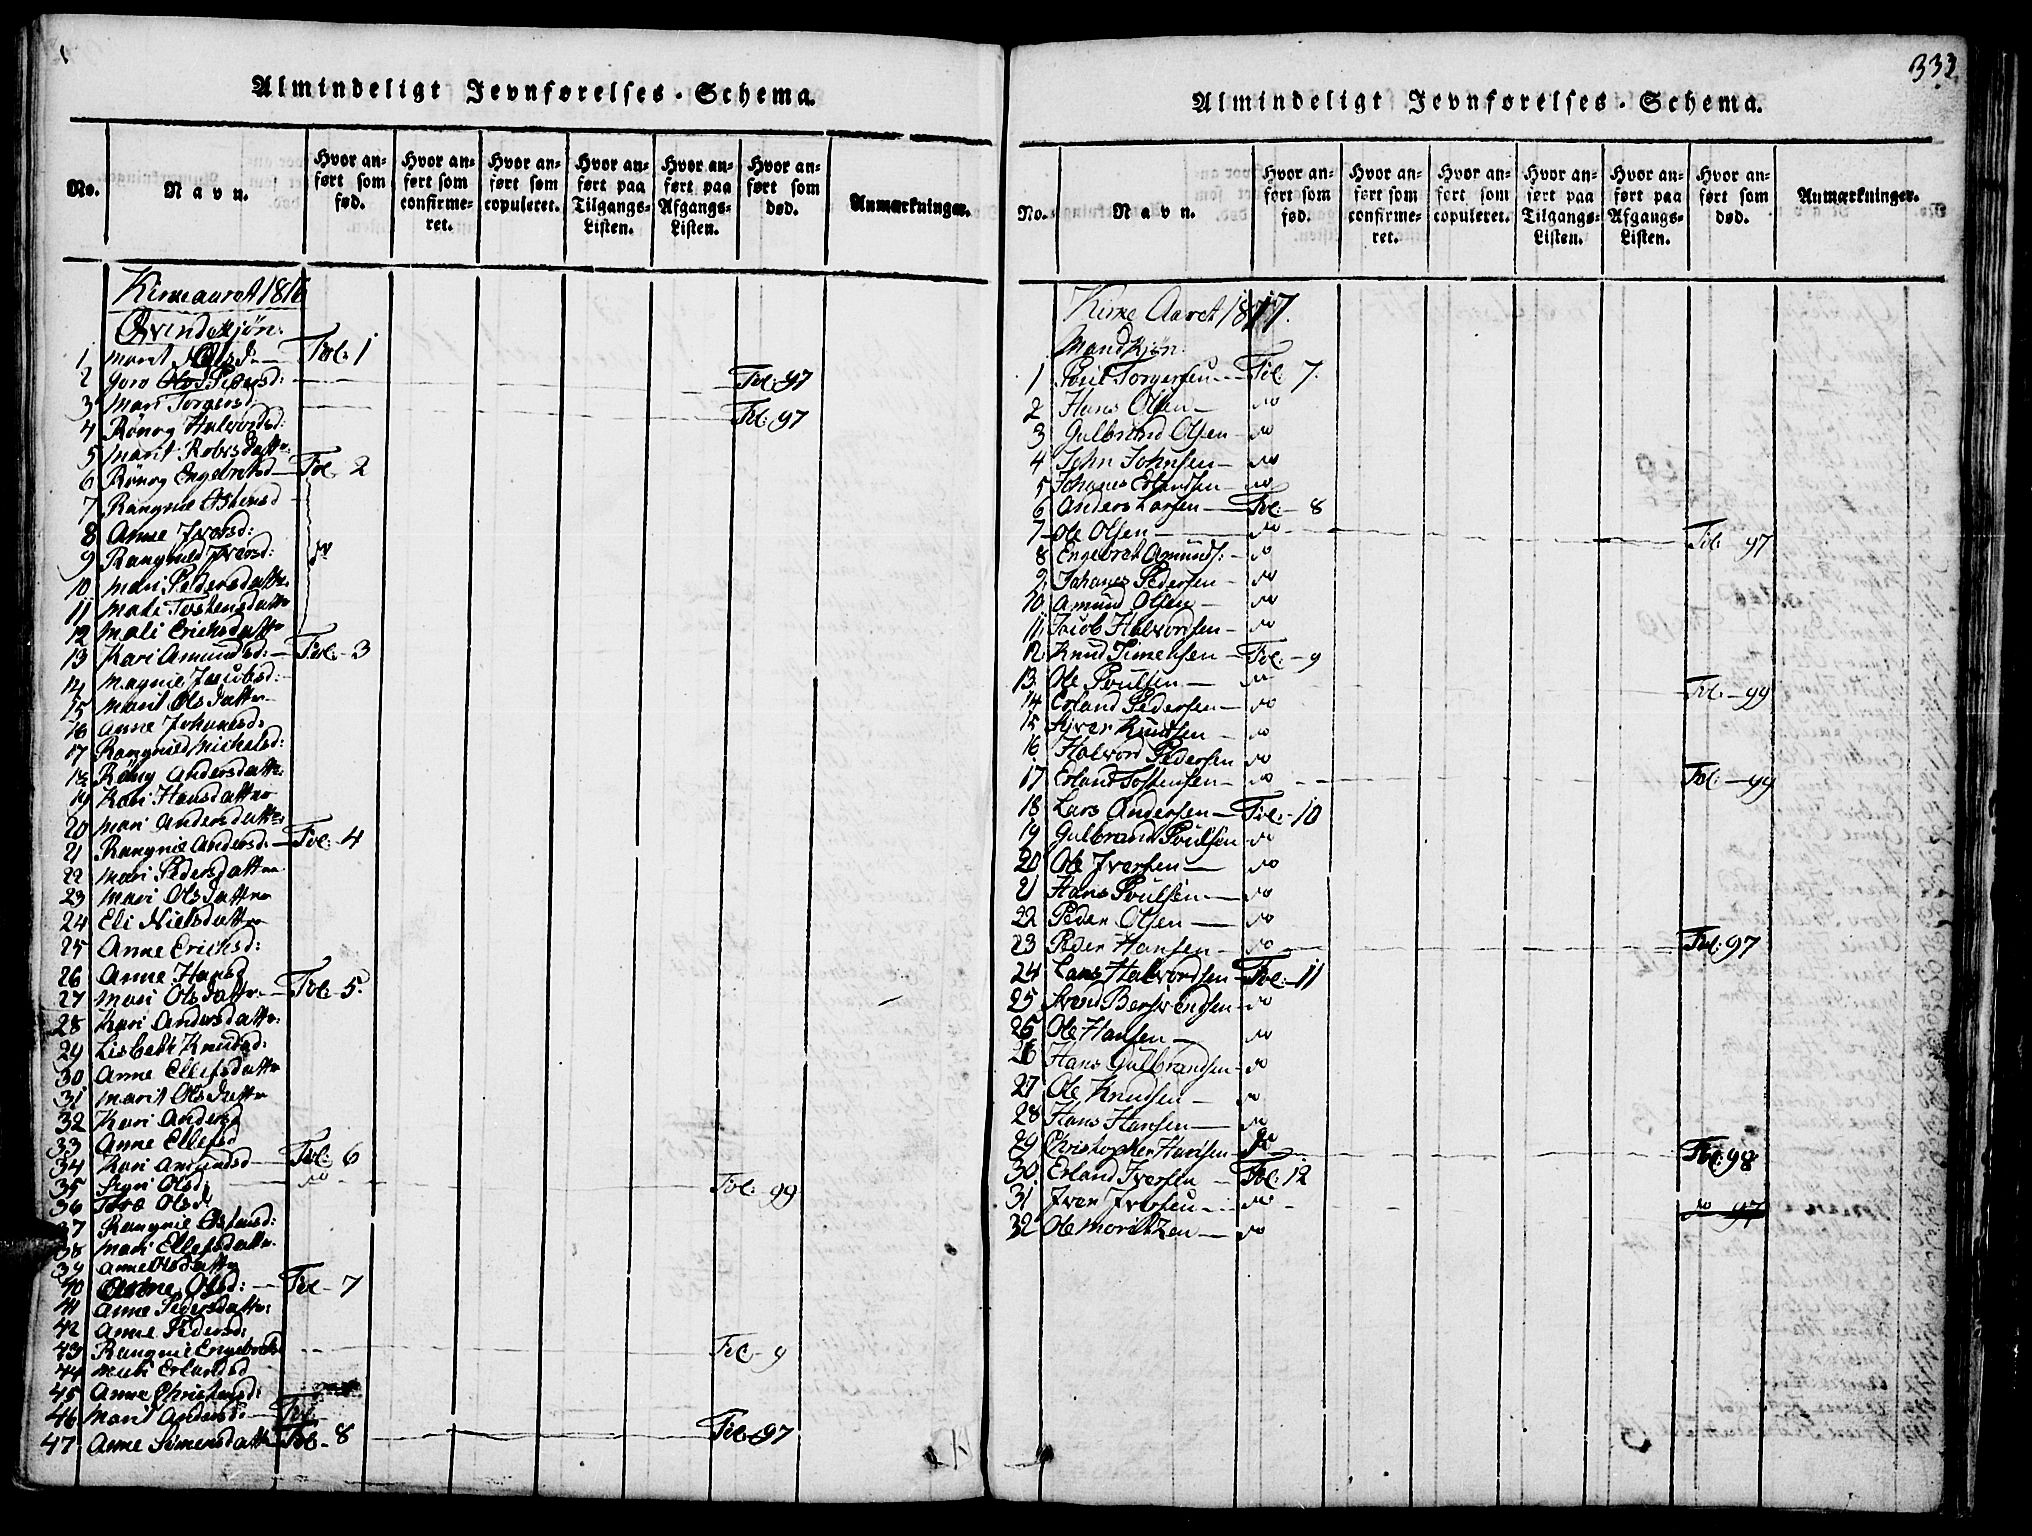 Almindeligt Jevnførelses-Schema.
No.
Navn.
Hvor anført som fød.
Hvor anført som confirmeret.
Hvor anført som copuleret.
Hvor anført paa Tilgangs-Listen.
Hvor anført paa Afgangs-Listen.
Hvor anført som død.
Anmærkninger.
Kirkeaaret 1816
Qvindekjøn.
1 Marit Olsd. Fol: 1
2 Goro Pedersd: Fol: 97
3 Mari Torgersd:
4 Rønog Halvordsd: Fol: 97
5 Marit
6 Rønog Engebretsd Fol 2
7 Rangnie Ostensd
8 Anne Iversd:
9 Rangnild Iversd: do
10 Mari Pedersdatter
11 Mari Tostensdatter
12 Mali Erichsdatter
13 Kari Amundsd: Fol: 3
14 Magnie Jacobsd:
15 Marit Olsdatter
16 Anne Johanesd:
17 Rangnild Michelsd:
18 Røng Andersdatter
19 Kari Hansdatter
20 Mari Andersdatter
21 Rangnie Andersd. Fol: 4
22 Mari Pedersdatter
23 Mari Olsdatter
24 Eli Nielsdatter
25 Anne Erichsd:
26 Anne Hansd
27 Mari Olsdatter Fol: 5.
28 Kari Andersdatter
29 Lisbeth Knudsd:
30 Anne Ellefsdatter
31 Marit Olsdatter
32 Kari Andersd
33 Anne Ellefsd
34 Kari Amundsd Fol: 6
35 Sigri Olsd: do Fol: 99
36 Olsd
37 Rangnie Ostensd:
38 Mari Ellefsdatter
39 Anne Olsdatter
40 Anne Olsd: Fol 7
41 Anne Pedersdatter
42 Anne Pedersd:
43 Rangnie Engebretsd Fol 9
44 Mari Erlandsd
45 Anne Christensd:
46 Marit Andersd:
47 Anne Simensdatter Fol. 8 Fol: 97
333
Almindeligt Jevnførelses-Schema.
No.
Navn.
Hvor anført som fød.
Hvor anført som confirmeret.
Hvor anført som copuleret.
Hvor anført paa Tilgangs-Listen.
Hvor anført paa Afgangs-Listen.
Hvor anført som død.
Anmærkninger.
Kirke Aaret 1817.
Mandkjøn.
1 Poul Torgersen Fol: 7.
2 Hans Olsen do
3 Gulbrand Olsen do
4 John Johnsen do
5 Johanes Erlandsen do
6 Anders Larsen Fol: 8
7 Ole Olsen do Fol: 97
8 Engebret Amunds: do
9 Johanes Pedersen do
10 Amund Olsen do
11 Jacob Halvorsen do
12 Knud Simensen Fol: 9
13 Ole Poulsen do Fol: 99
14 Erland Pedersen do
15 Syver Knudsen do
16 Halvor Pedersen do
17 Erland Tostensen do Fol: 99
18 Lars Andersen Fol: 10
19 Gulbrand Poulsen do
20 Ole Iversen do
21 Hans Poulsen do
22 Peder Olsen do
23 Peder Hansen do Fol: 97
24 Lars Halvordsen Fol: 11
25 Svend Berswendsen do
26 Ole Hansen do
26 Hans Gulbrandsen do
27 Ole Knudsen do
28 Hans Hansen do
29 Christopher Hansen do Fol: 98
30 Erland Iversen Fol: 12
31 Iver Iversen do do 97
32 Ole Moritzen do